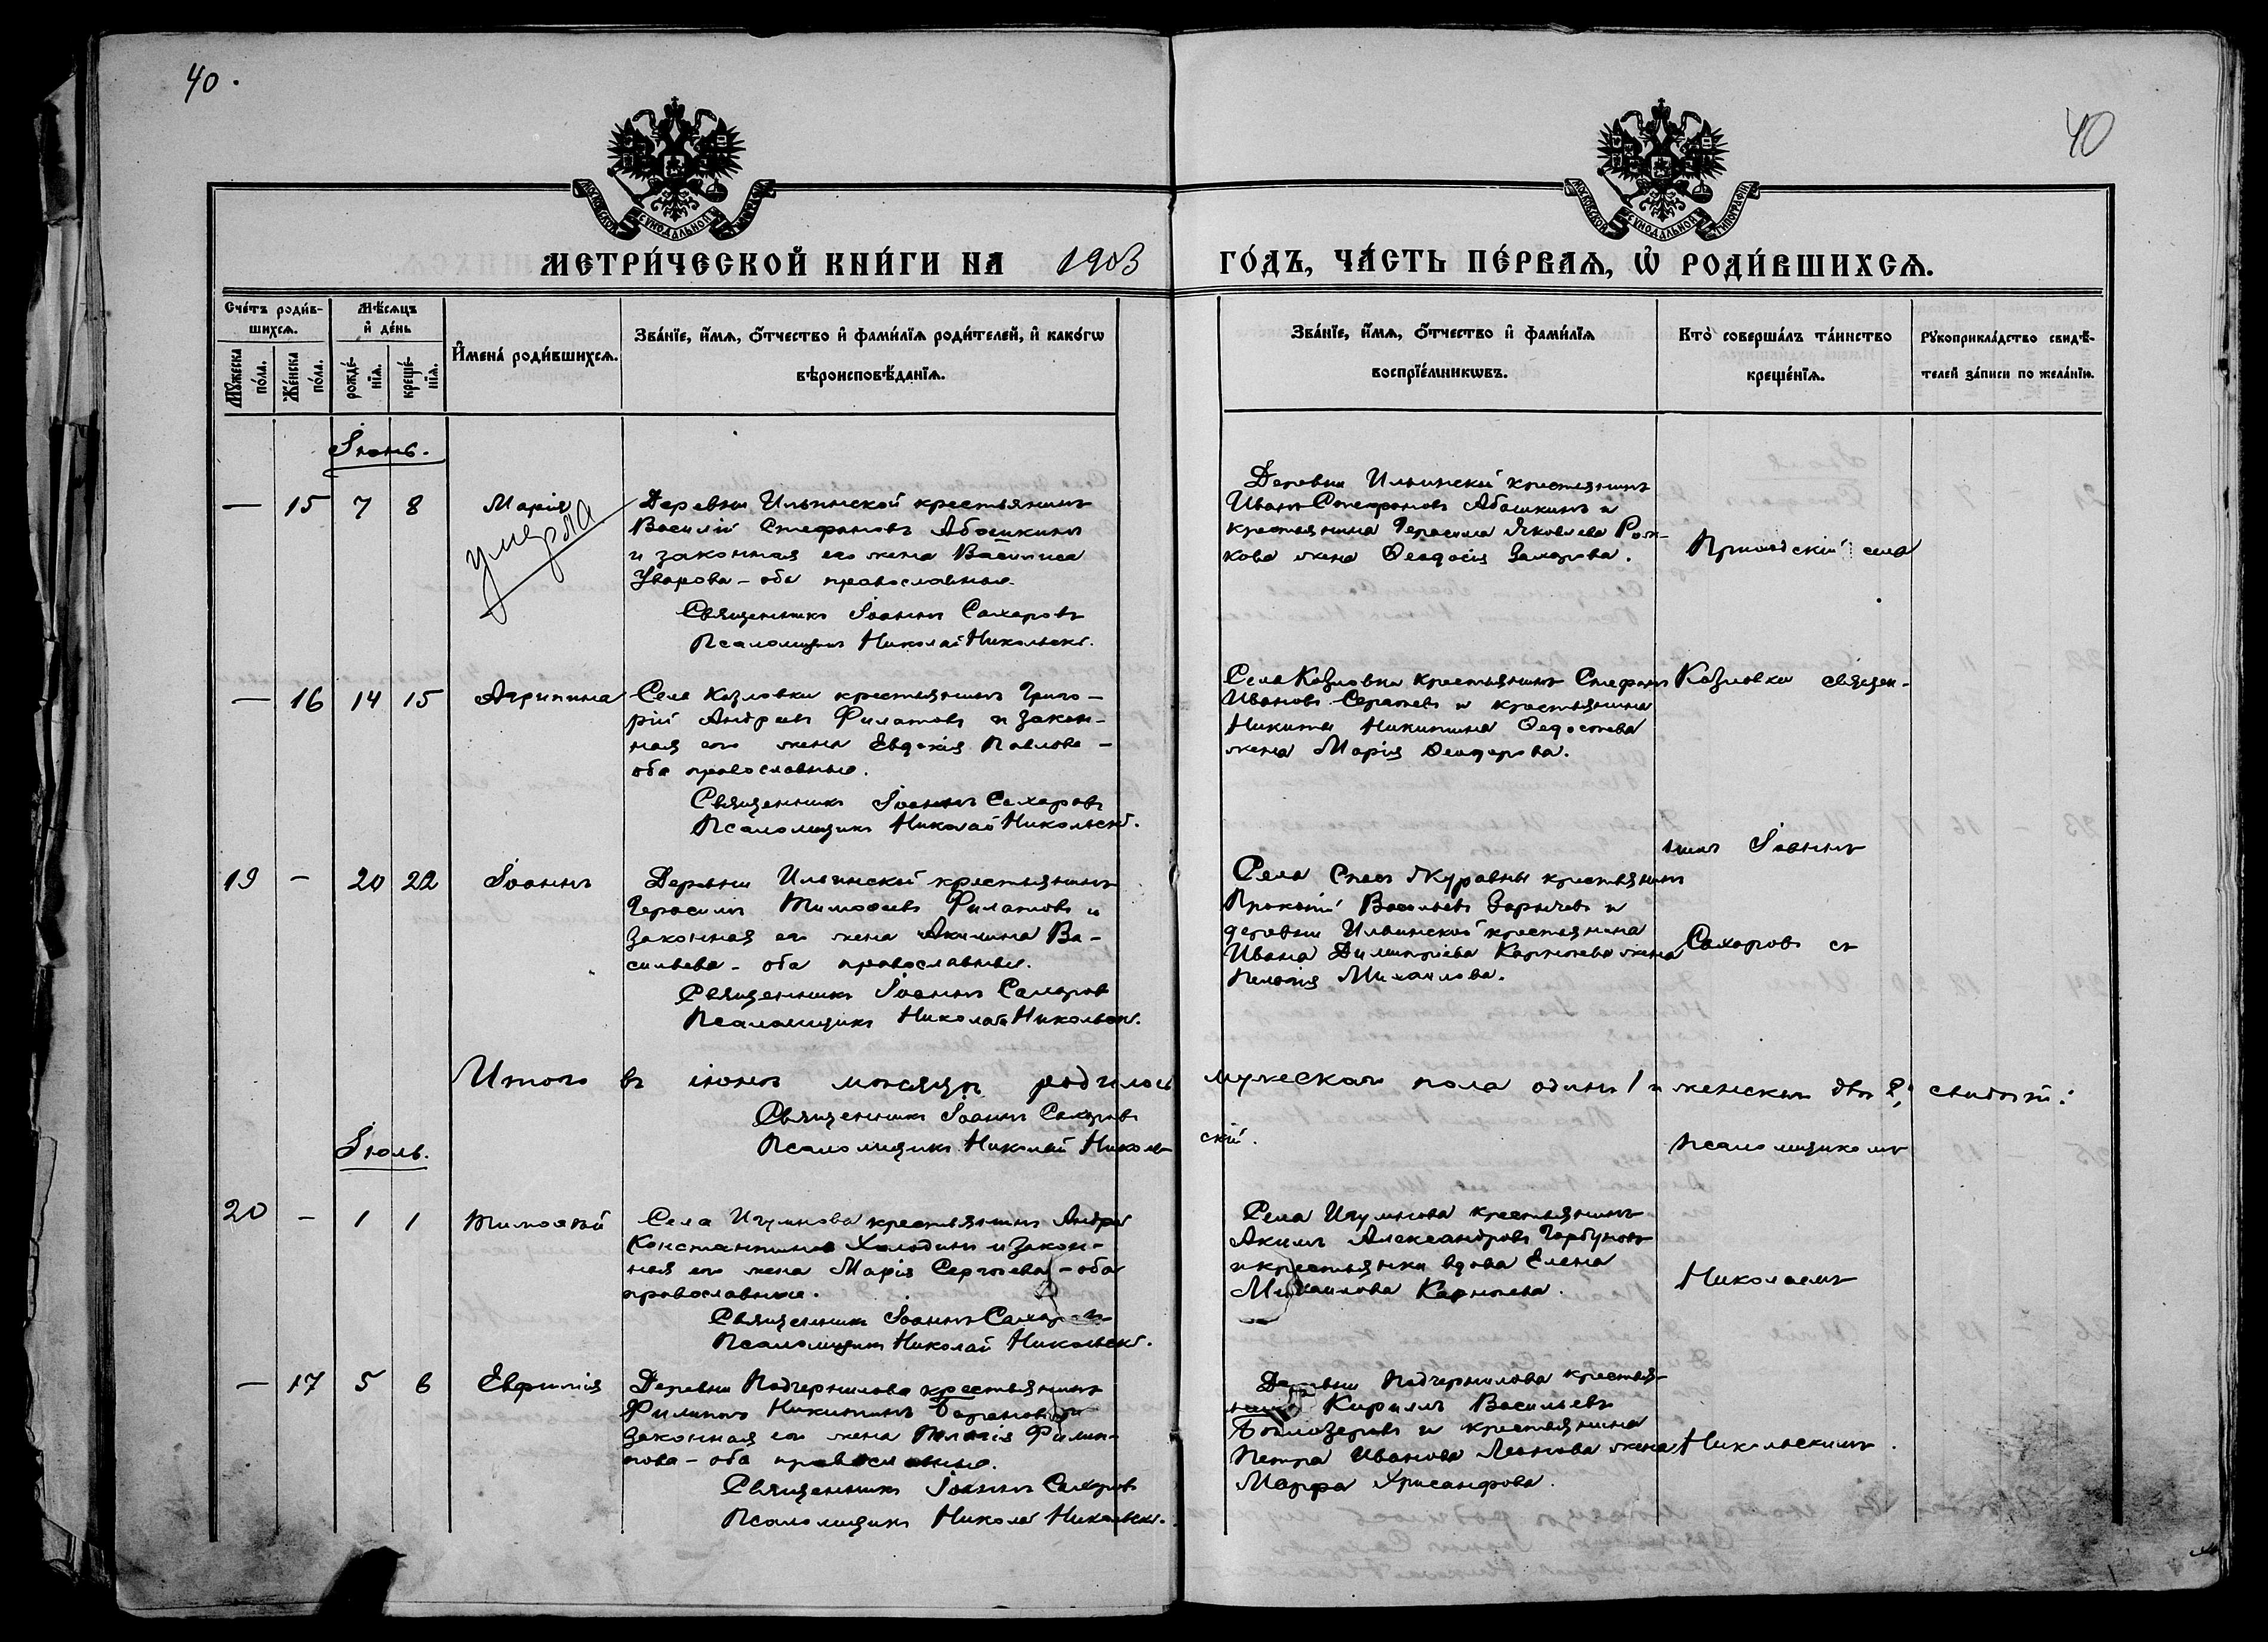 40.
40
МОСКОВСКОЙ СѴНОДАЛЬНОЙ ТИПОГРАФІИ
МОСКОВСКОЙ СѴНОДАЛЬНОЙ ТИПОГРАФІИ
МЕТРИ́ЧЕСКОЙ КНИ́ГИ НА 1903 ГО́ДЪ, ЧА́СТЬ ПЕ́РВАѦ, Ѡ҆ РОДИ́ВШИХСѦ.
Сче́тъ роди́в-
шихсѧ.
Мꙋ́жеска по́ла.
Же́нска по́ла.
Мѣ́сѧцъ
и҆ де́нь
рожде́-
нїѧ.
креще́-
нїѧ.
И҆мена̀ роди́вшихсѧ.
Зва́нїе, и҆́мѧ, ѻ҆́тчество и҆ фами́лїѧ роди́телей, и҆ како́гѡ
вѣроисповѣ́данїѧ.
Зва́нїе, и҆́мѧ, ѻ҆́тчество и҆ фами́лїѧ
воспрїе́мникѡвъ.
Кто̀ соверша́лъ та́инство
креще́нїѧ.
Рꙋкоприкла́дство свидѣ́-
телей за́писи по жела́нїю.
Іюнь.
— 15 7 8 Марія
умерла
Деревни Ильинской крестьянинъ
Василій Стефановъ Абашкинъ
и законная его жена Васса
Уварова – оба православные.
Священникъ Іоаннъ Сахаровъ
Псаломщикъ Николай Никольскі.
Деревни Ильинской крестьянинъ
Иванъ Стефановъ Абашкинъ и
крестьянина Герасима Яковлева
кова жена Ѳеодосія Захарова.
села
— 16 14 15 Агрипина
Села Козловки крестьянинъ Григо-
рій Андреевъ Филатовъ и закон-
ная его жена Евдокія Павлова –
оба православные.
Священникъ Іоаннъ Сахаровъ
Псаломщикъ Николай Никольскі.
Села Козловки крестьянинъ Стефанъ
Ивановъ Сергѣевъ и крестьянина
Никиты Никитина
жена Марія Ѳеодорова.
Козловки священ-
никъ Іоаннъ
19 – 20 22 Іоаннъ
Деревни Ильинской крестьянинъ
Герасимъ Тимоѳеевъ Филатовъ и
законная его жена Акилина Ва-
сильева – оба православные.
Священникъ Іоаннъ Сахаровъ
Псаломщикъ Николай Никольскі.
Села Спасъ Журавны крестьянинъ
Прокопій Васильевъ Зарычевъ и
деревни Ильинской крестьянина
Ивана Димитріева Карнѣева жена
Пелагія Михаилова.
Сахаровъ съ
Итого въ іюнѣ мѣсяцѣ родилось мужескаго пола одинъ 1 и женскаго двѣ 2,
Священникъ Іоаннъ Сахаровъ
Псаломщикъ Николай Николь-
скій.
псаломщикомъ
Іюль.
20 – 1 1 Тимоѳей
Села Игумнова крестьянинъ Андрей
Константиновъ Холодинъ и закон-
ная его жена Марія Сергѣева – оба
православные.
Священникъ Іоаннъ Сахаровъ
Псаломщикъ Николай Никольскі.
Села Игумнова крестьянинъ
Акимъ Александровъ Горбуновъ
и крестьянка вдова Елена
Михаилова Карнѣева.
Николаемъ
— 17 5 6 Евфимія
Деревни Подчернилова крестьянинъ
Филиппъ Никитинъ и
законная его жена Пелагія Филип-
пова – оба православные.
Священникъ Іоаннъ Сахаровъ
Псаломщикъ Николай Никольскі.
Деревни Подчернилова крестья-
нинъ Кириллъ Васильевъ
Бѣлозеровъ и крестьянина
Петра Иванова Леонова жена
Марфа Хрисанфова.
Никольскимъ.